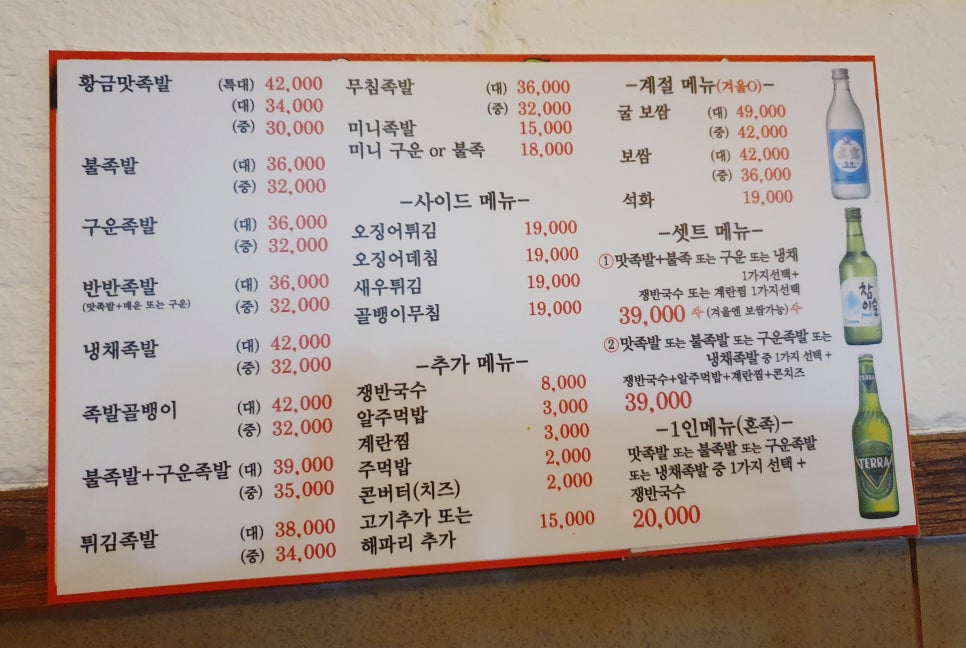 황금맛족발 (특대) 42,000
(대) 34,000
(중) 30,000
불족발 (대) 36,000
(중) 32,000
구운족발 (대) 36,000
(중) 32,000
반반족발 (대) 36,000
(맛족발+매운 또는 구운) (중) 32,000
냉채족발 (대) 42,000
(중) 32,000
족발골뱅이 (대) 42,000
(중) 32,000
불족발+구운족발 (대) 39,000
(중) 35,000
튀김족발 (대) 38,000
(중) 34,000
무침족발 (대) 36,000
(중) 32,000
미니족발 15,000
미니 구운 or 불족 18,000
-사이드 메뉴-
오징어튀김 19,000
오징어데침 19,000
새우튀김 19,000
골뱅이무침 19,000
-추가 메뉴-
쟁반국수 8,000
알주먹밥 3,000
계란찜 3,000
주먹밥 2,000
콘버터(치즈) 2,000
고기추가 또는 15,000
해파리 추가
-계절 메뉴(겨울O)-
굴 보쌈 (대) 49,000
(중) 42,000
보쌈 (대) 42,000
(중) 36,000
석화 19,000
-셋트 메뉴-
①맛족발+불족 또는 구운 또는 냉채
1가지선택+
쟁반국수 또는 계란찜 1가지선택
39,000 (겨울엔 보쌈가능)
②맛족발 또는 불족발 또는 구운족발 또는
냉채족발 중 1가지 선택+
쟁반국수+알주먹밥+계란찜+콘치즈
39,000
-1인메뉴(혼족)-
맛족발 또는 불족발 또는 구운족발
또는 냉채족발 중 1가지 선택+
쟁반국수
20,000
참
이슬
fresh
TERRA